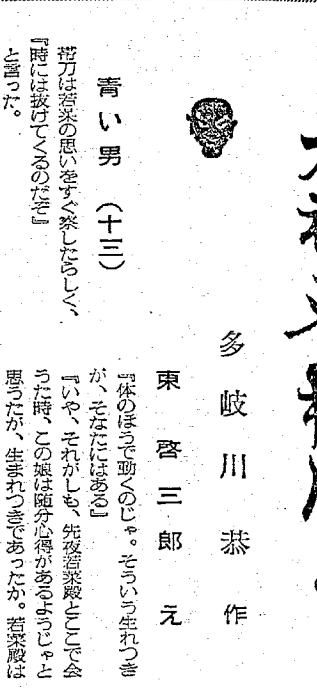 多岐川恭作
東啓三郎え
青い男(十三)
帯刀は若菜の思いをすぐ察したらしく、
『時には抜けてくるのだぞ』
と言った。
『体のほうで動くのじゃ。そういう生れつき
が、そなたにはある』
『いや、それがしも、先夜若菜殿とここで会
うた時、この娘は随分心得があるようじゃと
思うたが、生まれつきであったか。若菜殿は